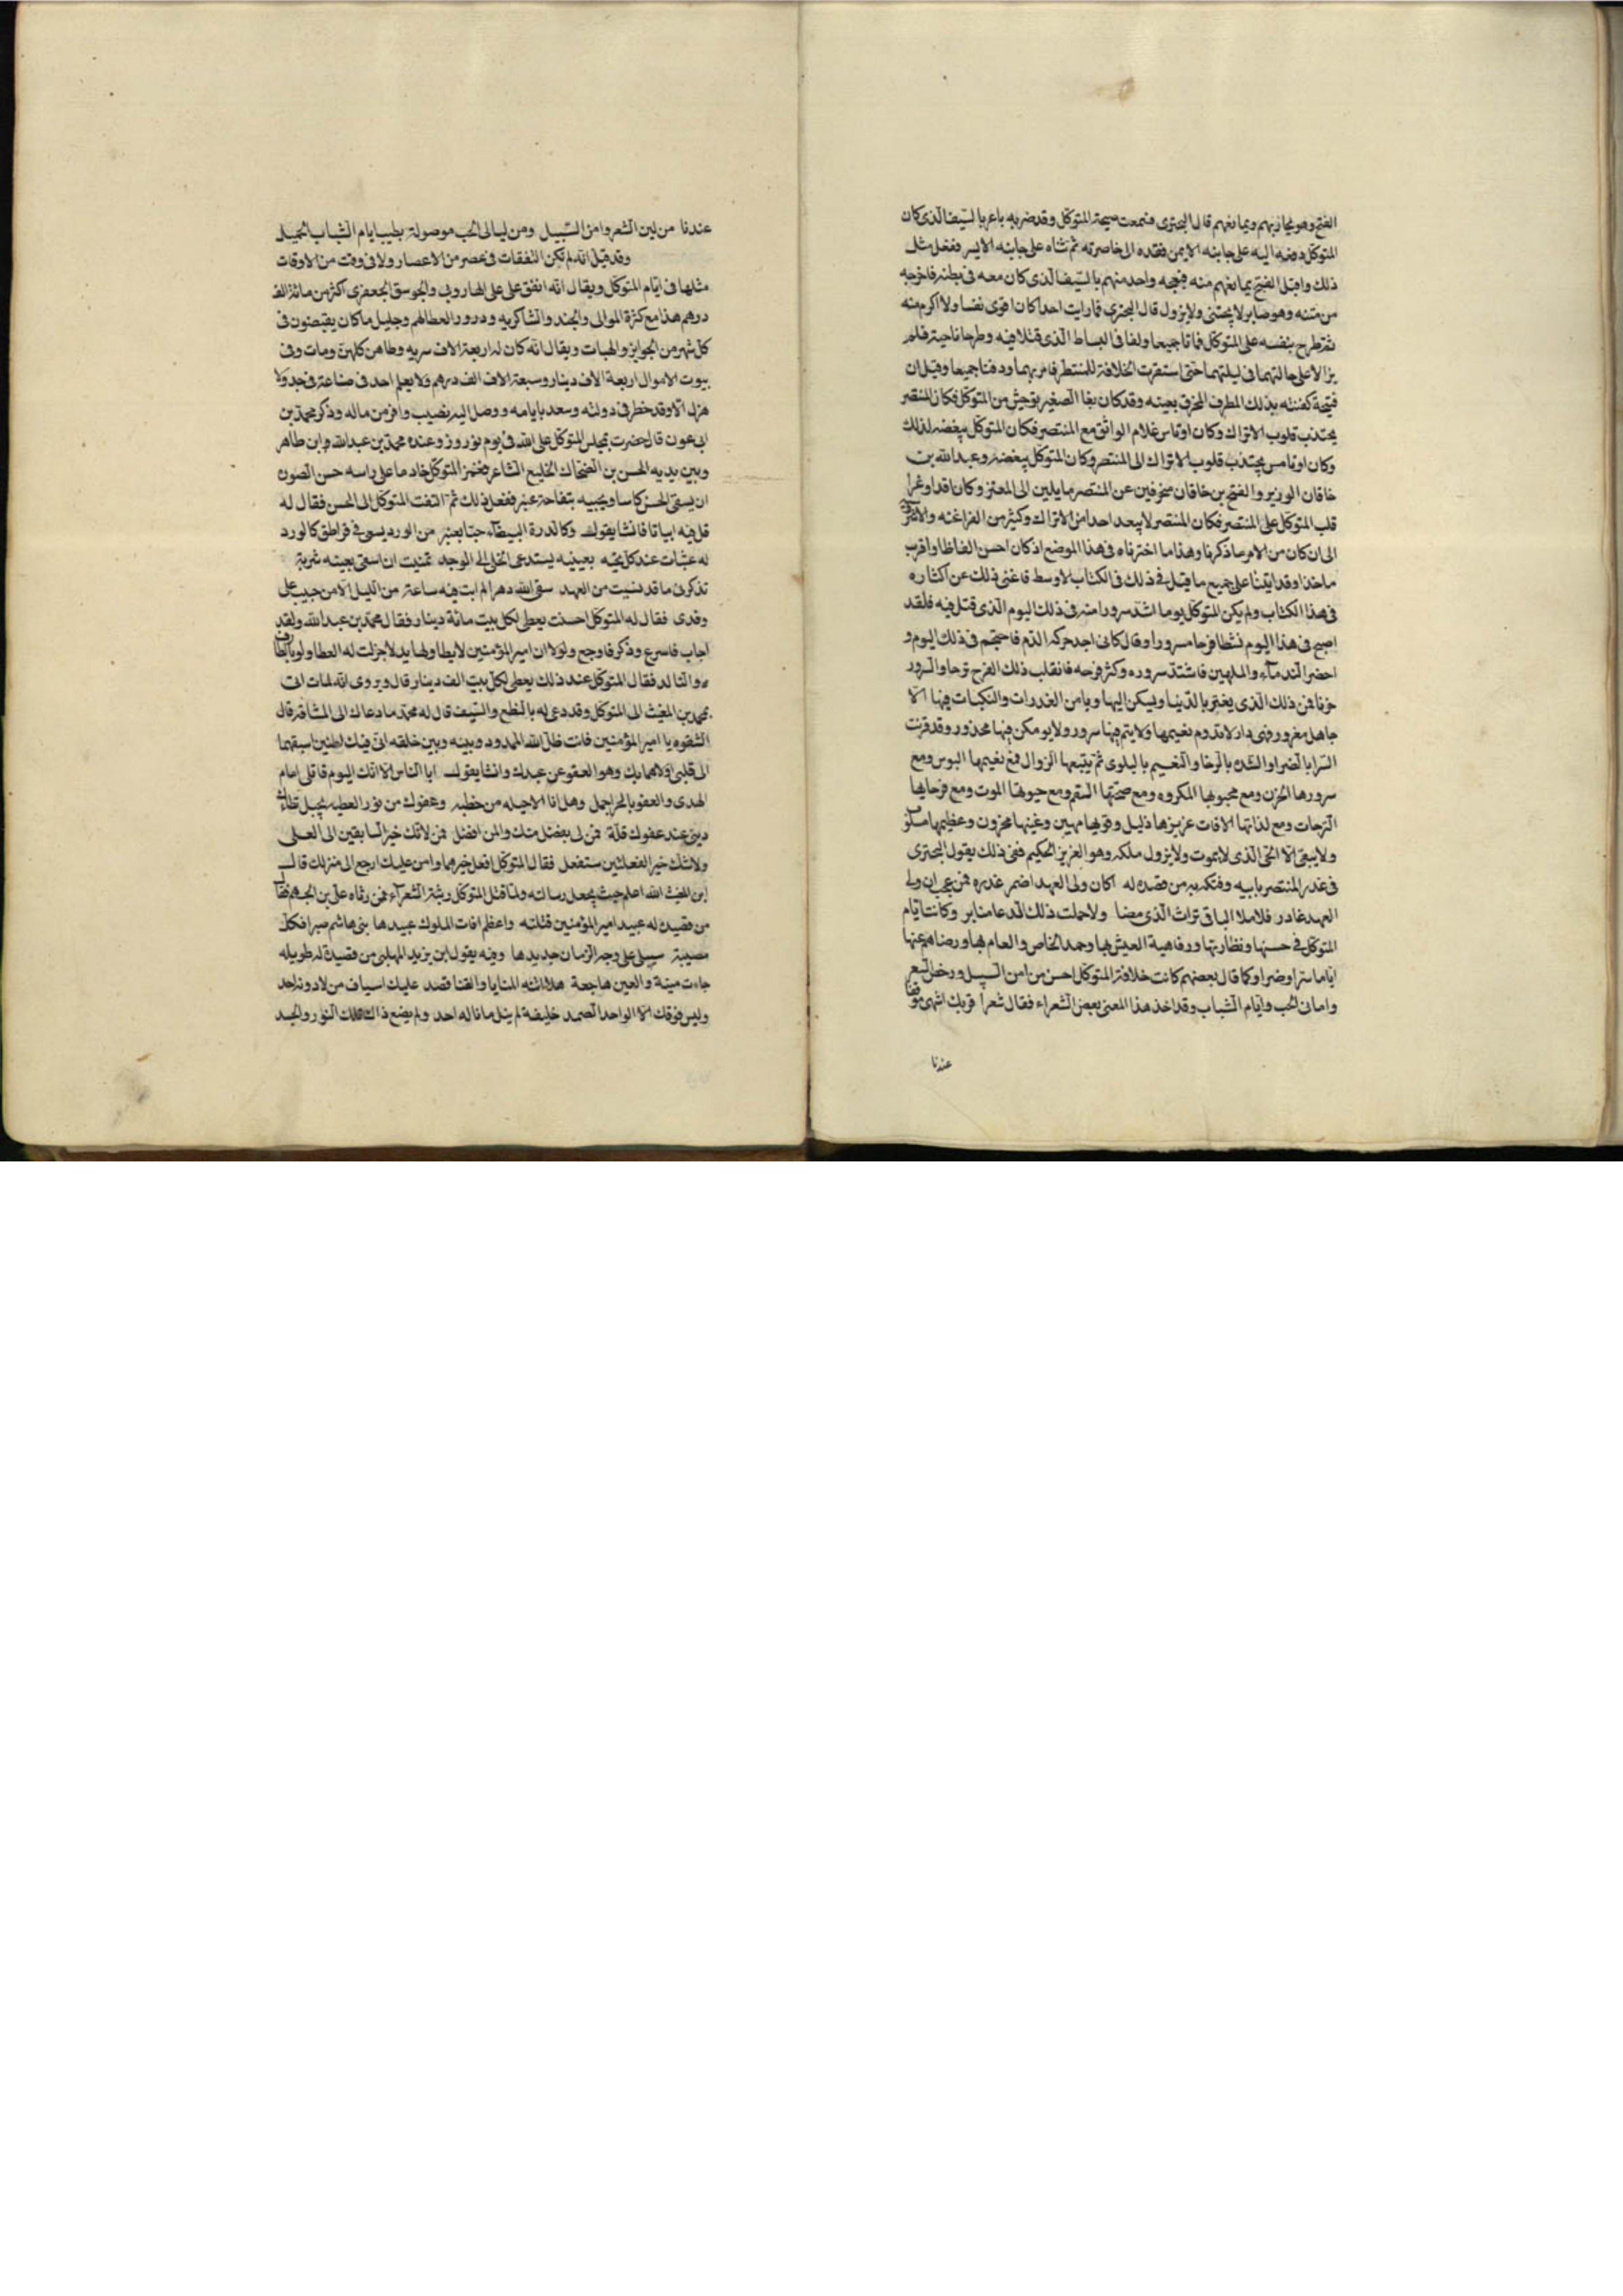 الفتح وهو يمازبهم ويمانعهم قال البحترى فسمعت صيحة المتوكل وقد ضربه باغر بالسيف الذى كان
المتوكل دفعه اليه على جانبه الايمن فقده الى خاصرته ثم ثناه على جانبه الايسر ففعل مثل
ذلك واقبل الفتح يمانعهم منه فبعجه واحد منهم بالسيف الذى كان معه فى بطنه فاخرجه
من متنه وهو صابر لا يحتنى ولا يزول قال البحترى فما رايت احدا كان اقوى نفسا ولا اكرم منه
ثم طرح بنفسه على المتوكل فماتا جميعا ولفا فى البساط الذى قتلا فيه وطرحا ناحية فلم
يزالا على حالتهما فى ليلتهما حتى استقرت الخلافة للمنتصر فامر بهما ودفنا جميعا وقيل ان
قبيحة كفنته بذلك المطرف المخرق بعينه وقد كان بغا الصغير توحش من المتوكل فكان المنتصر
يجتذب قلوب الاتراك وكان اوتامس غلام الواثق مع المنتصر فكان المتوكل يبغضه لذلك
وكان اوتامس يجتذب قلوب الاتراك الى المنتصر وكان المتوكل يبغضه وعبد الله بن
خاقان الوزير والفتح بن خاقان منحرفين عن المنتصر مايلين الى المعتز وكان اقد اوغرا
قلب المتوكل على المنتصر فكان المنتصر لا يبعد احدا من الاتراك وكثير من الفراغنه والاشروسنيه
الى ان كان من الامر ما ذكرنا وهذا ما اخترناه فى هذا الموضع اذ كان احسن الفاظا واقرب
ماخذا وقد اتينا على جميع ما قيل فى ذلك فى الكتاب الاوسط فاغنى ذلك عن اكثاره
فى هذا الكتاب ولم يكن المتوكل يوما اشد سرورا منه فى ذلك اليوم الذى قتل فيه فلقد
اصبح فى هذا اليوم نشطا فرحا مسرورا وقال كانى اجد حركه الدم فاحتجم فى ذلك اليوم و
احضر الندماء والملهين فاشتد سروره وكثر فرحه فانقلب ذلك الفرح ترحا والسرور
حزنا فمن ذلك الذى يغتر بالدنيا ويسكن اليها ويامن الغدرات والنكبات فيها الا
جاهل مغرور فهى دار لا تدوم نعيمها ولا يتم فيها سرور ولا يومن فيها محذور وقد قرنت
السرا بالضرا والشده بالرخا والنعيم بالبلوى ثم يتبعها الزوال فمع نعيمها البوس ومع
سرورها الحزن ومع محبوبها المكروه ومع صحتها السقم ومع حيوتها الموت ومع فرحاتها
الترحات ومع لذاتها الافات عزيزها ذليل وقويها مهين وغنيها محزون وعظيمها مسلوب
ولا يبقى الا الحى الذى لا يموت ولا يزول ملكه وهو العزيز الحكيم ففى ذلك يقول البحترى
فى غدر المنتصر بابيه وفتكه به من قصيده له اكان ولى العهد اضمر غدره فمن عجب ان ولى
العهد غادر فلا ملا الباقى تراث الذى مضا ولا حملت ذلك الدعا منابر وكانت ايام
المتوكل فى حسنها ونظارتها ورفاهية العيش بها وحمد الخاص والعام بها ورضاهم عنها
اياما سرا وضرا وكما قال بعضهم كانت خلافة المتوكل احسن من امن السبيل ورخص السعر
وامانى الحب وايام الشباب وقد اخذ هذا المعنى بعض الشعراء فقال شعرا قربك اشهى موقعا
عندنا
عندنا من لين السعر وامن السبيل ومن ليالى الحب موصولة بطيب ايام الشباب الجميل
وقد قيل انه لم تكن النفقات فى عصر من الاعصار ولا فى وقت من الاوقات
مثلها فى ايام المتوكل ويقال انه انفق على على الهارونى والجوسق الجعفرى اكثر من مائة الف
درهم هذا مع كثرة الموالى والجند والشاكريه ودرور العطا لهم وجليل ما كان يقبضون فى
كل شهر من الجوايز والهبات ويقال انه كان له اربعة الاف سريه وطاهن كلهن ومات وفى
بيوت الاموال اربعة الاف دينار وسبعة الاف الف درهم ولا يعلم احد فى صناعة فى جد ولا
هزل الا وقد خطر فى دولته وسعد بايامه ووصل اليه نصيب وافر من ماله وذكر محمد بن
ابى عون قال حضرت مجلس المتوكل على الله فى يوم نوروز وعنده محمد بن عبد الله وابن طاهر
وبين يديه الحسن بن الضحاك الخليع الشاعر فغمز المتوكل خادما على راسه حسن الصون
ان يسقى الحسن كاسا ويحييه بتفاحة عنبر ففعل ذلك ثم التفت المتوكل الى الحسن فقال له
قل فيه ابياتا فانشا يقول وكالدرة البيضاء حيا بعنبر من الورد يسعى فى قراطق كالورد
له عبثات عند كل تحيه بعينيه يستدعى الخلى الى الوجد تمنيت ان اسقى بعينه شربة
تذكرنى ما قد نسيت من العهد سقى الله دهرا لم ابت فيه ساعة من الليل الا من حبيب على
وقدى فقال له المتوكل احسنت يعطى لكل بيت مائة دينار فقال محمد بن عبد الله ولقد
اجاب فاسرع وذكر فاوجع ولولا ان امير المؤمنين لا يطاولها يد لاجزلت له العطا ولو بالطارف
والتالد فقال المتوكل عند ذلك يعطى لكل بيت الف دينار قال ويروى انه لما اتى
بمحمد بن المغيث الى المتوكل وقد دعى له بالنطع والسيف قال له محمد ما دعاك الى المشاقة قال
الشقوه يا امير المؤمنين فانت ظل الله الممدود وبينه وبين خلقه انى فيك لظنين اسبقهما
الى قلبى اولاهما بك وهو العفو عن عبدك وانشا يقول ابا الناس الا انك اليوم قاتلى امام
الهدى والعفو بالحر اجمل وهل انا الا جبله من خطيه وعفوك من نور العطيه يجبل تضاءل
دينى عند عفوك قلة فمن لى بفضل منك والمن افضل فمن لانك خير السابقين الى العلى
ولا شك خير الفعلتين ستفعل فقال المتوكل افعل خيرهما وامن عليك ارجع الى منزلك قال
ابن المغيث الله اعلم حيث يجعل رسالته ولما قتل المتوكل رثته الشعراء فمن رثاه على بن الجهم فقال
من قصيده له عبيد امير المؤمنين قتلته واعظم افات الملوك عبيدها بنى هاشم صبرا فكل
مصيبة سيبلى على وجه الزمان جديدها وفيه يقول ابن يزيد المهلبى من قصيدة له طويله
جاءت منية والعين هاجعة هلا اتته المنايا والقنا قصد عليك اسياف من لا دونه احد
وليس فوقك الا الواحد الصمد خليفة لم ينل ما ناله احد ولم يضع